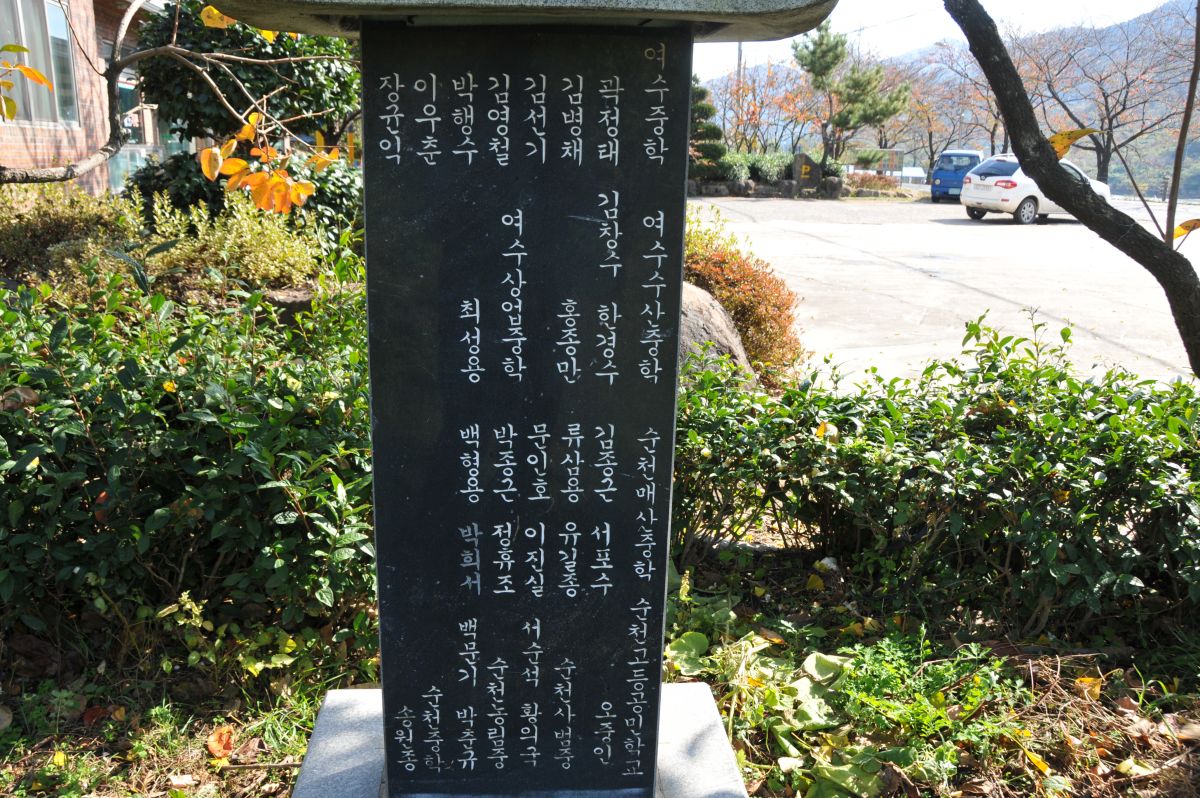 여수중학 여수수산중학 순천매산중학 순천고등공민학교
곽정태 김창수 한경수 김종근 서포수 오중인
김병채 홍종만 류삼용 유길종 순천사범중
김선기 문인호 이진실 서순석 황의국
김영철 여수상업중학 박종근 정휴조 순천농림중
박행수 최성용 백형용 박희서 백문기 박춘규
이우춘 순천중학
장윤익 송원동